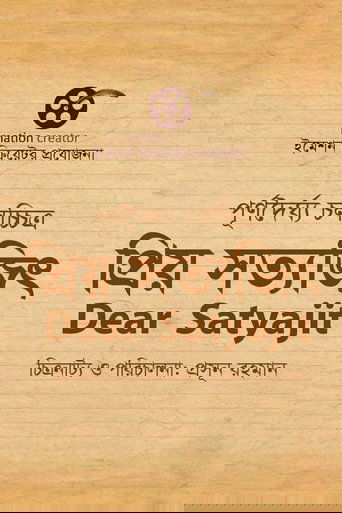 mation creator
ইমেশন ক্রিয়েটর প্রযোজনা
পূর্ণদৈর্ঘ্য চলচ্চিত্র
প্রিয় সত্যজিৎ
Dear Satyajit
চিত্রনাট্য ও পরিচালনা: প্রসূন রহমান